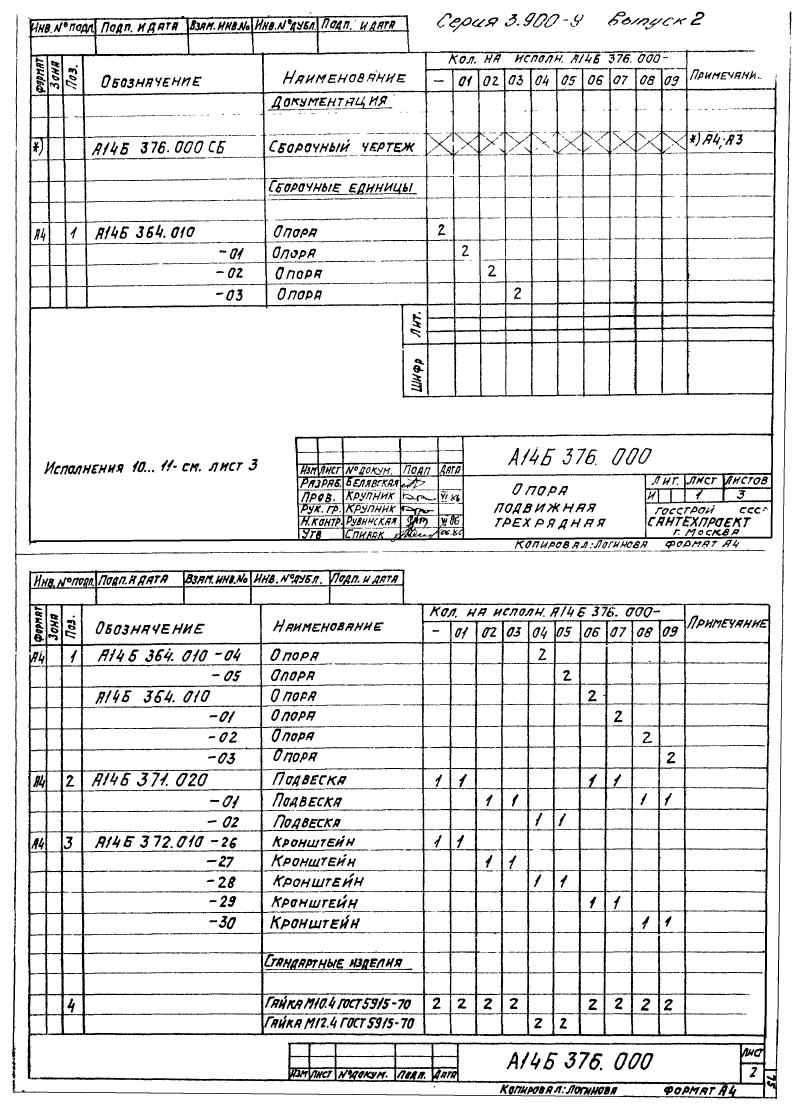 Серия 3.900-9 выпуск 2
Инв.№подл. Подп. и дата Взам.инв.№ Инв.№дубл. Подп. и дата
Формат Зона Поз. Обозначение Наименование Кол. на исполн. А14Б 376.000- Примечани.
– 01 02 03 04 05 06 07 08 09
Документация
*) А14Б 376.000 СБ Сборочный чертеж *) А4; А3
Сборочные единицы
А4 1 А14Б 364.010 Опора 2
-01 Опора 2
-02 Опора 2
-03 Опора 2
Лит.
Шифр
Исполнения 10... 11- см. лист 3
Изм Лист №докум. Подп Дата
Разраб. Белявская
Пров. Крупник VI 86
Рук. гр. Крупник
Н.контр. Рувинская VI 86
Утв Спивак 06.86
А14Б 376. 000
Опора
подвижная
трехрядная
Лит. Лист Листов
И 1 3
Госстрой ссср
Сантехпроект
г. Москва
Копировал: Логинова формат А4
Инв.№подл. Подп. и дата Взам.инв.№ Инв.№дубл. Подп. и дата
Формат Зона Поз. Обозначение Наименование Кол. на исполн. А14Б 376. 000- Примечание
– 01 02 03 04 05 06 07 08 09
А4 1 А14Б 364. 010 -04 Опора 2
-05 Опора 2
А14Б 364. 010 Опора 2
-01 Опора 2
-02 Опора 2
-03 Опора 2
А4 2 А14Б 371. 020 Подвеска 1 1 1 1
-01 Подвеска 1 1 1 1
-02 Подвеска 1 1
А4 3 А14Б 372.010 -26 Кронштейн 1 1
-27 Кронштейн 1 1
-28 Кронштейн 1 1
-29 Кронштейн 1 1
-30 Кронштейн 1 1
Стандартные изделия
4 Гайка М10.4 ГОСТ 5915-70 2 2 2 2 2 2 2 2
Гайка М12.4 ГОСТ 5915-70 2 2
Изм Лист №докум. Подп. Дата
А14Б 376. 000
Лист
2
Копировал: Логинова формат А4
75